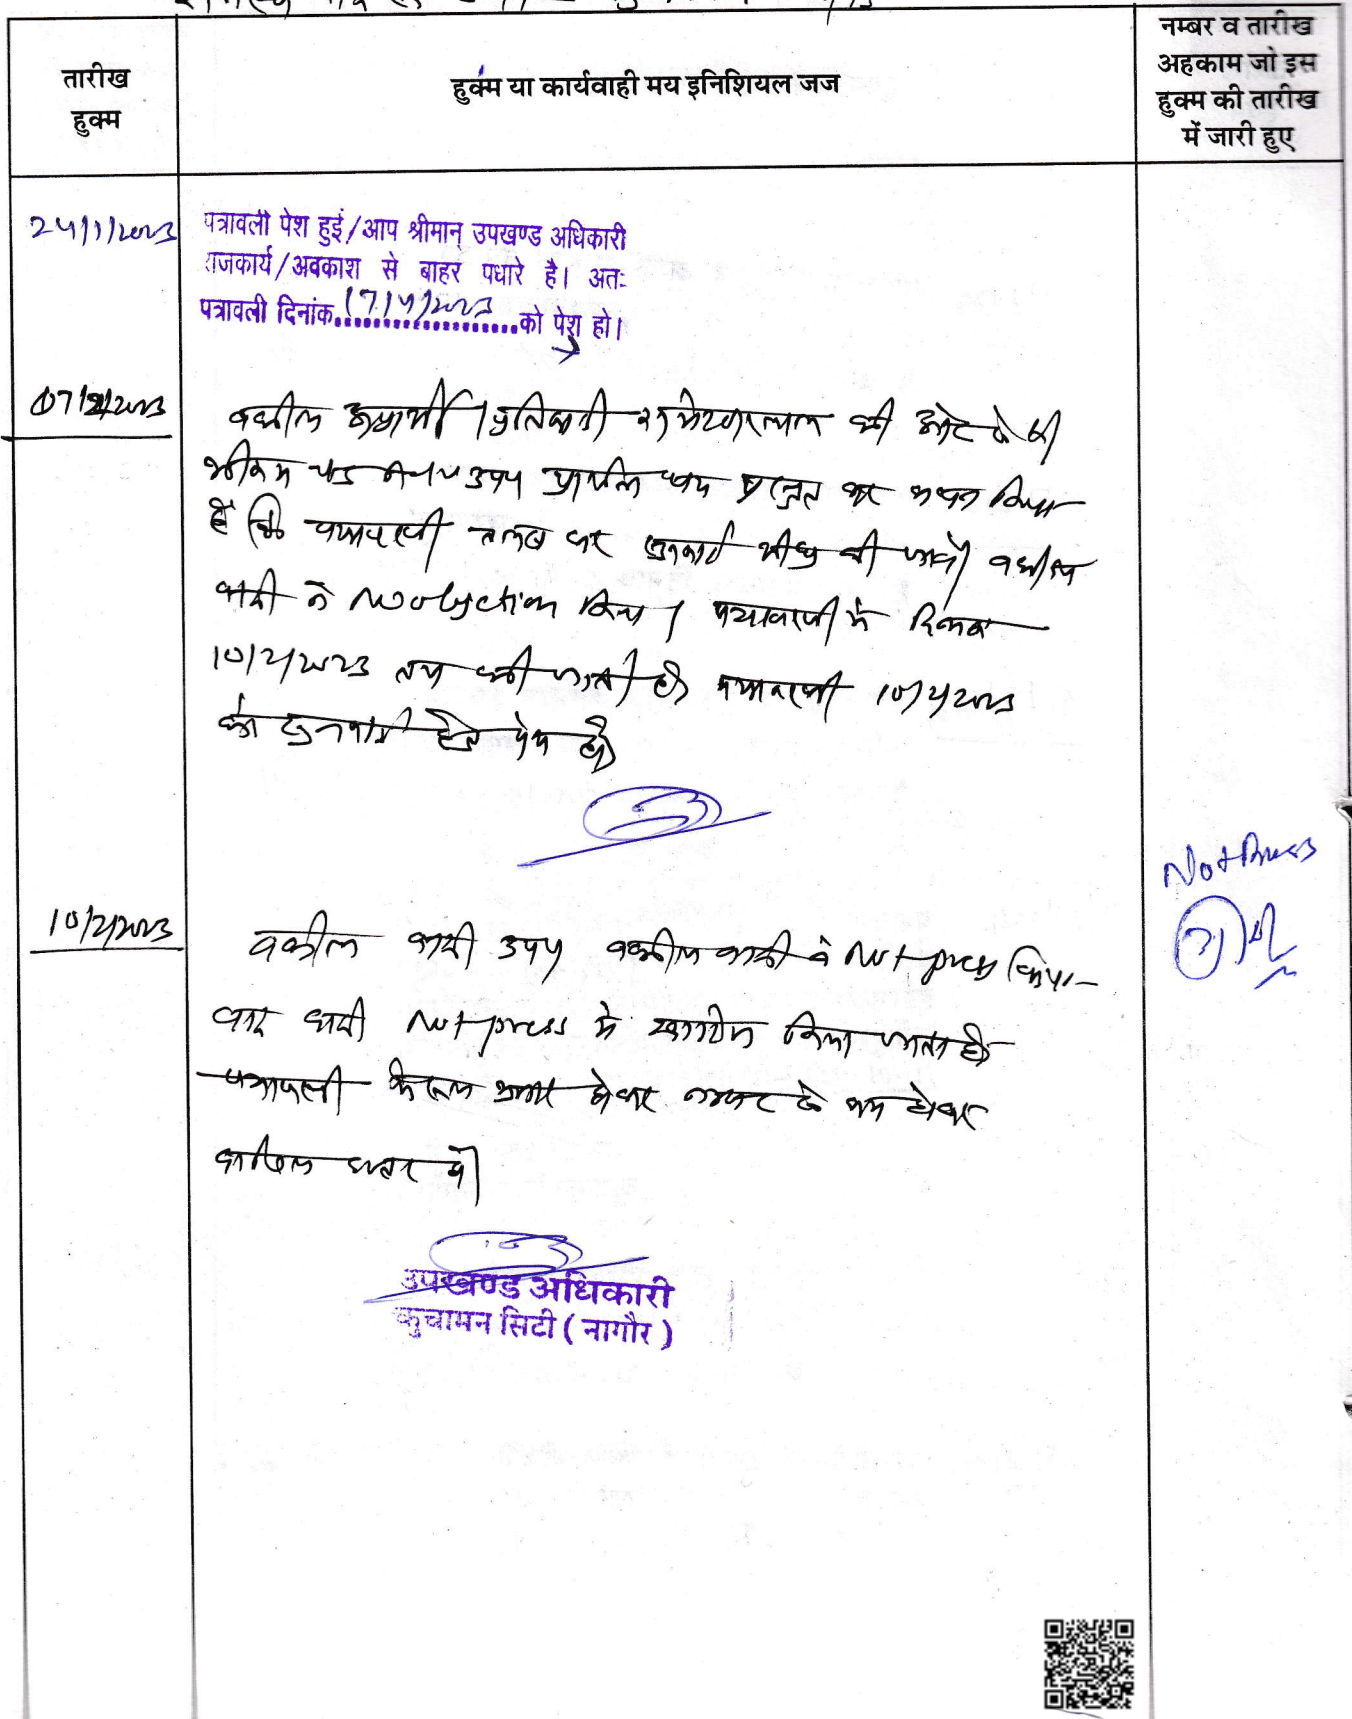 तारीख
हुक्म
हुक्म या कार्यवाही मय इनिशियल जज
नम्बर व तारीख
अहकाम जो इस
हुक्म की तारीख
में जारी हुए
24/1/2023
पत्रावली पेश हुई/आप श्रीमान् उपखण्ड अधिकारी
राजकार्य/अवकाश से बाहर पधारे है। अतः
पत्रावली दिनांक 17/4/2023 को पेश हो।
07/2/2023
वकील प्रार्थी/प्रतिवादी की ओर से
प्रस्तुत कर कथन किया
है कि पत्रावली तलब कर सुनवाई शीघ्र की जावे। वकील
वादी ने No objection किया। पत्रावली में दिनांक
10/2/2023 तय की जाती है। पत्रावली 10/2/2023
को सुनवाई हेतु पेश हो।
10/2/2023
वकील वादी उप॰ वकील वादी ने Not press किया
वाद वादी Not press में खारिज किया जाता है।
पत्रावली फैसल शुमार होकर नम्बर से कम होकर
दाखिल दफ्तर हो।
Not Press
उपखण्ड अधिकारी
कुचामन सिटी (नागौर)